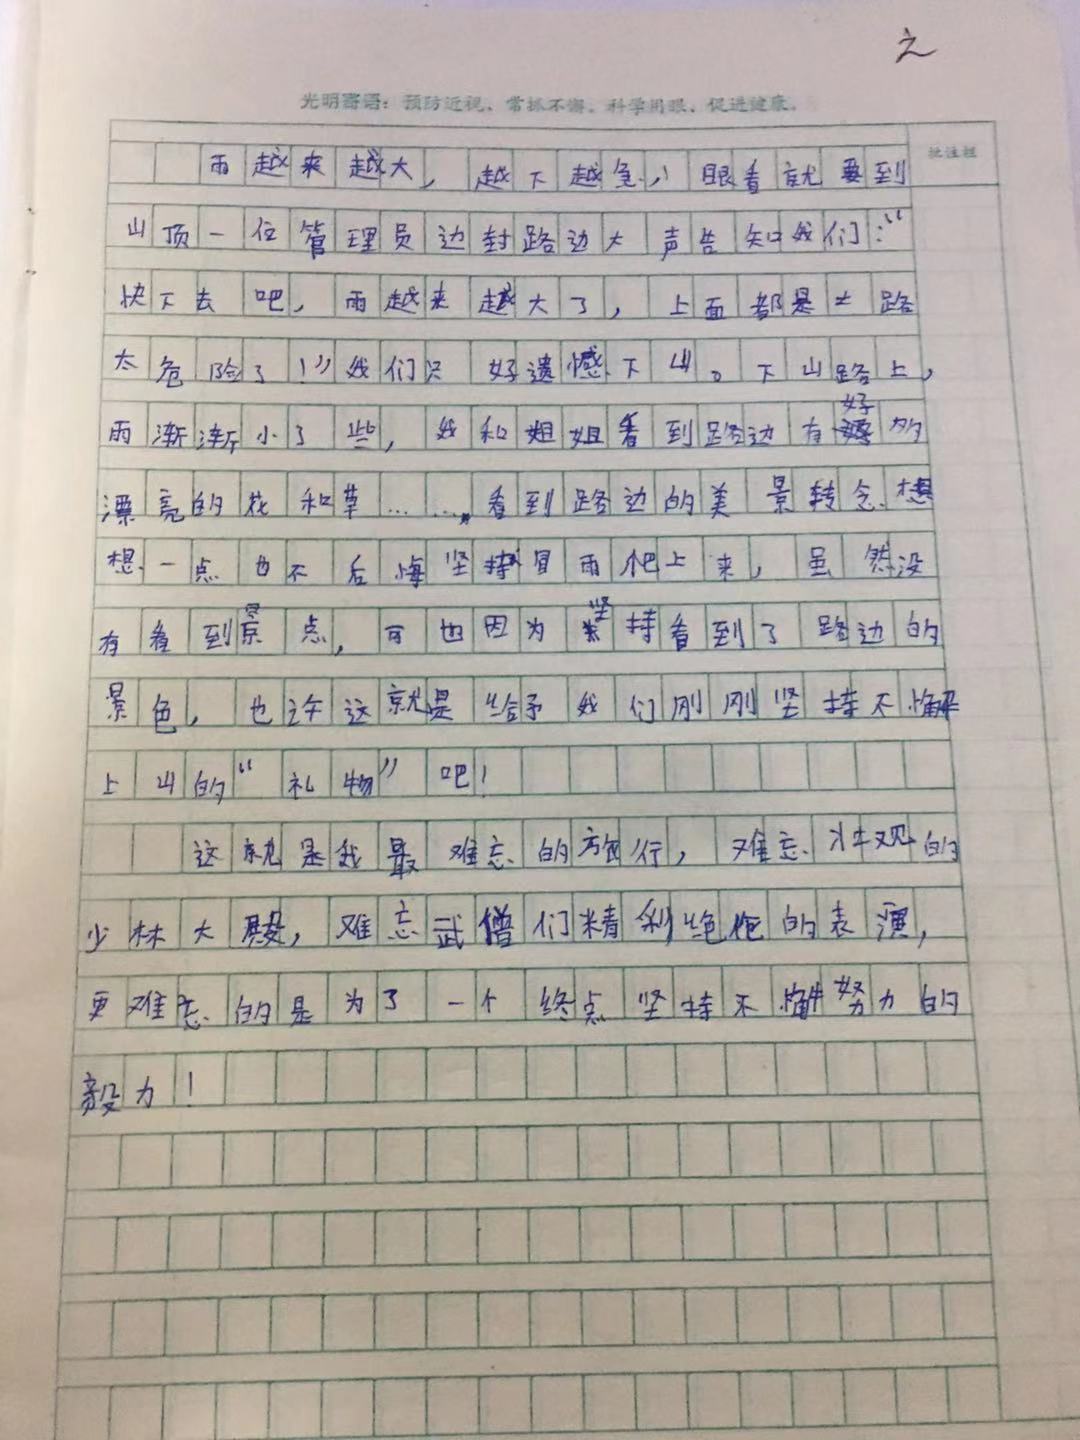 之
光明寄语：预防近视、常抓不懈、科学用眼、促进健康。
批注栏
雨越来越大，越下越急，眼看就要到
山顶一位管理员边封路边大声告知我们：“
快下去吧，雨越来越大了，上面都是土路
太危险了！”我们只好遗憾下山。下山路上，
雨渐渐小了些，我和姐姐看到路边有好多
漂亮的花和草……，看到路边的美景转念想
想一点也不后悔坚持冒雨爬上来，虽然没
有看到景点，可也因为坚持看到了路边的
景色，也许这就是给予我们刚刚坚持不懈
上山的“礼物”吧！
这就是我最难忘的旅行，难忘壮观的
少林大殿，难忘武僧们精彩绝伦的表演，
更难忘的是为了一个终点坚持不懈努力的
毅力！